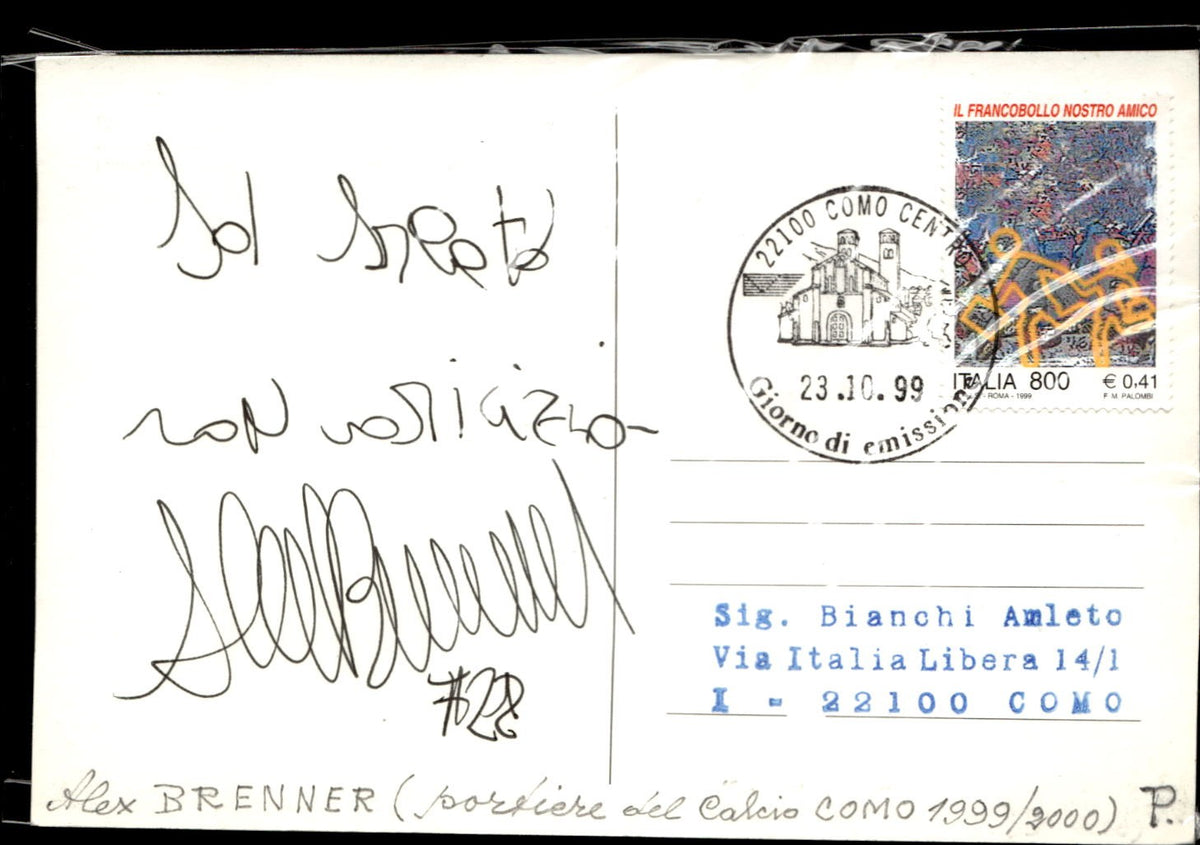 Ad Amleto
non
Alex Brenner
#28
Alex BRENNER (portiere del Calcio COMO 1999/2000) P.
IL FRANCOBOLLO NOSTRO AMICO
22100 COMO CENTRO
23.10.99
Giorno di emissione
ITALIA 800 € 0,41
ROMA - 1999 F. M. PALOMBI
Sig. Bianchi Amleto
Via Italia Libera 14/1
I - 22100 COMO